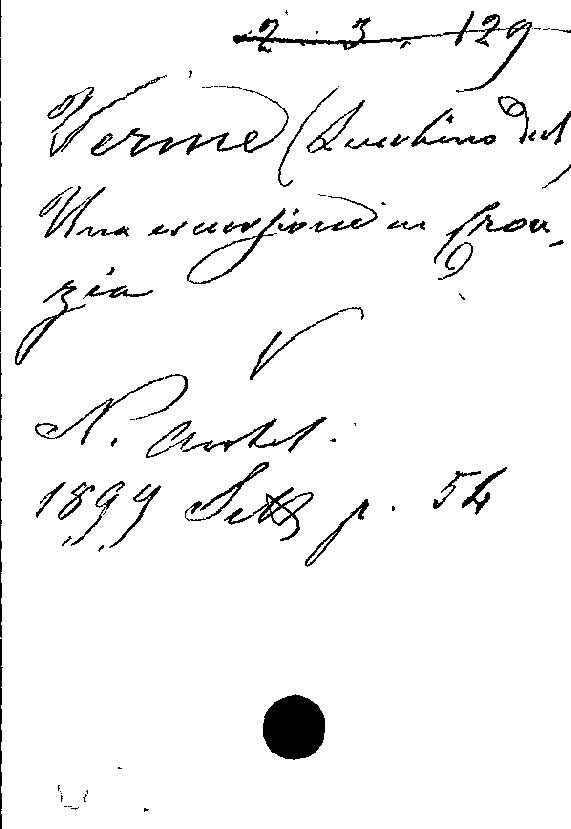 2. 3. 129
Verme (Luchino del)
Una escursione in Croa-
zia
V
N. Antol.
1899 Sett p. 54